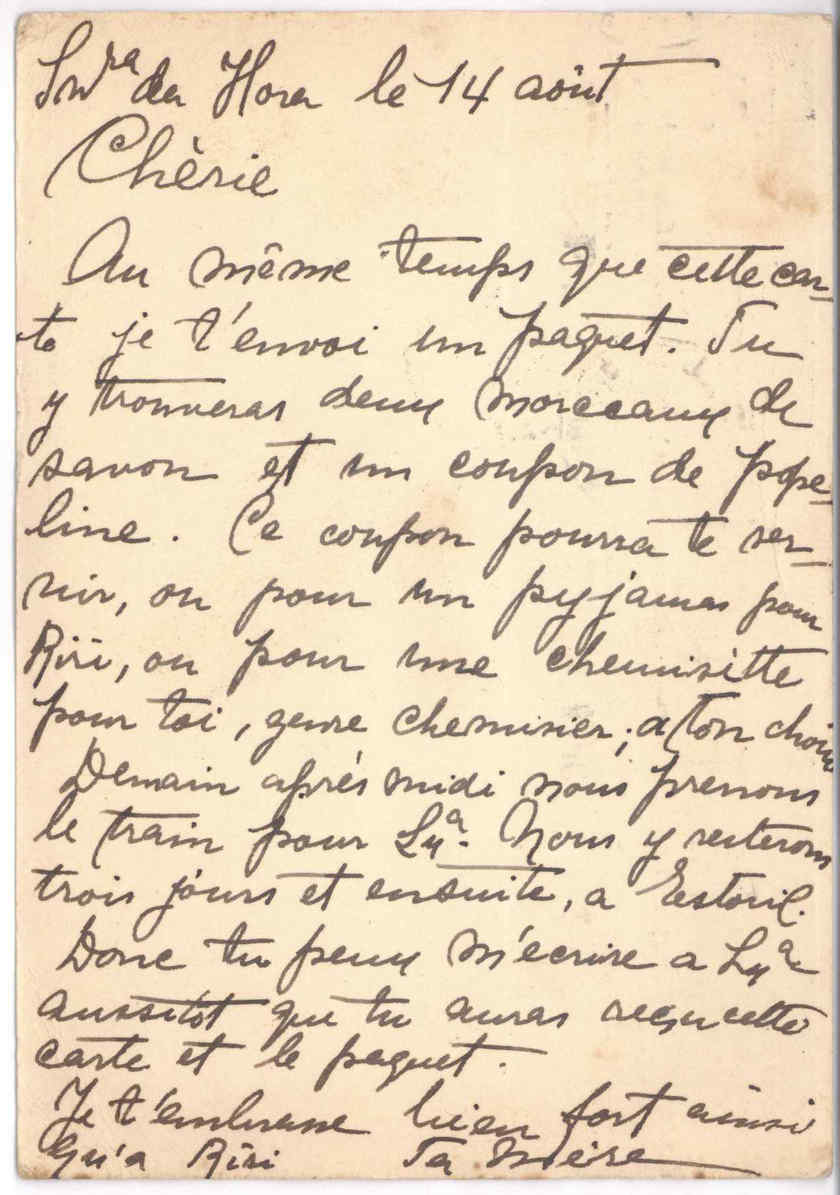 Snrª da Hora le 14 août
Chèrie
Au même temps que cette car-
te je t'envoi un paquet. Tu
y trouveras deux morceaux de
savon et un coupon de pope-
line. Ce coupon pourra te ser-
vir, ou pour un pyjamas pour
Riri, ou pour une chemisette
pour toi, genre chemisier; a ton choix
Demain après midi nous prenons
le train pour Lxª. Nous y resterons
trois jours et ensuite, a Estoril.
Donc tu peux m'ecrire a Lxª
aussitôt que tu auras reçu cette
carte et le paquet.
Je t'embrasse bien fort ainsi
qu'a Riri Ta Mère